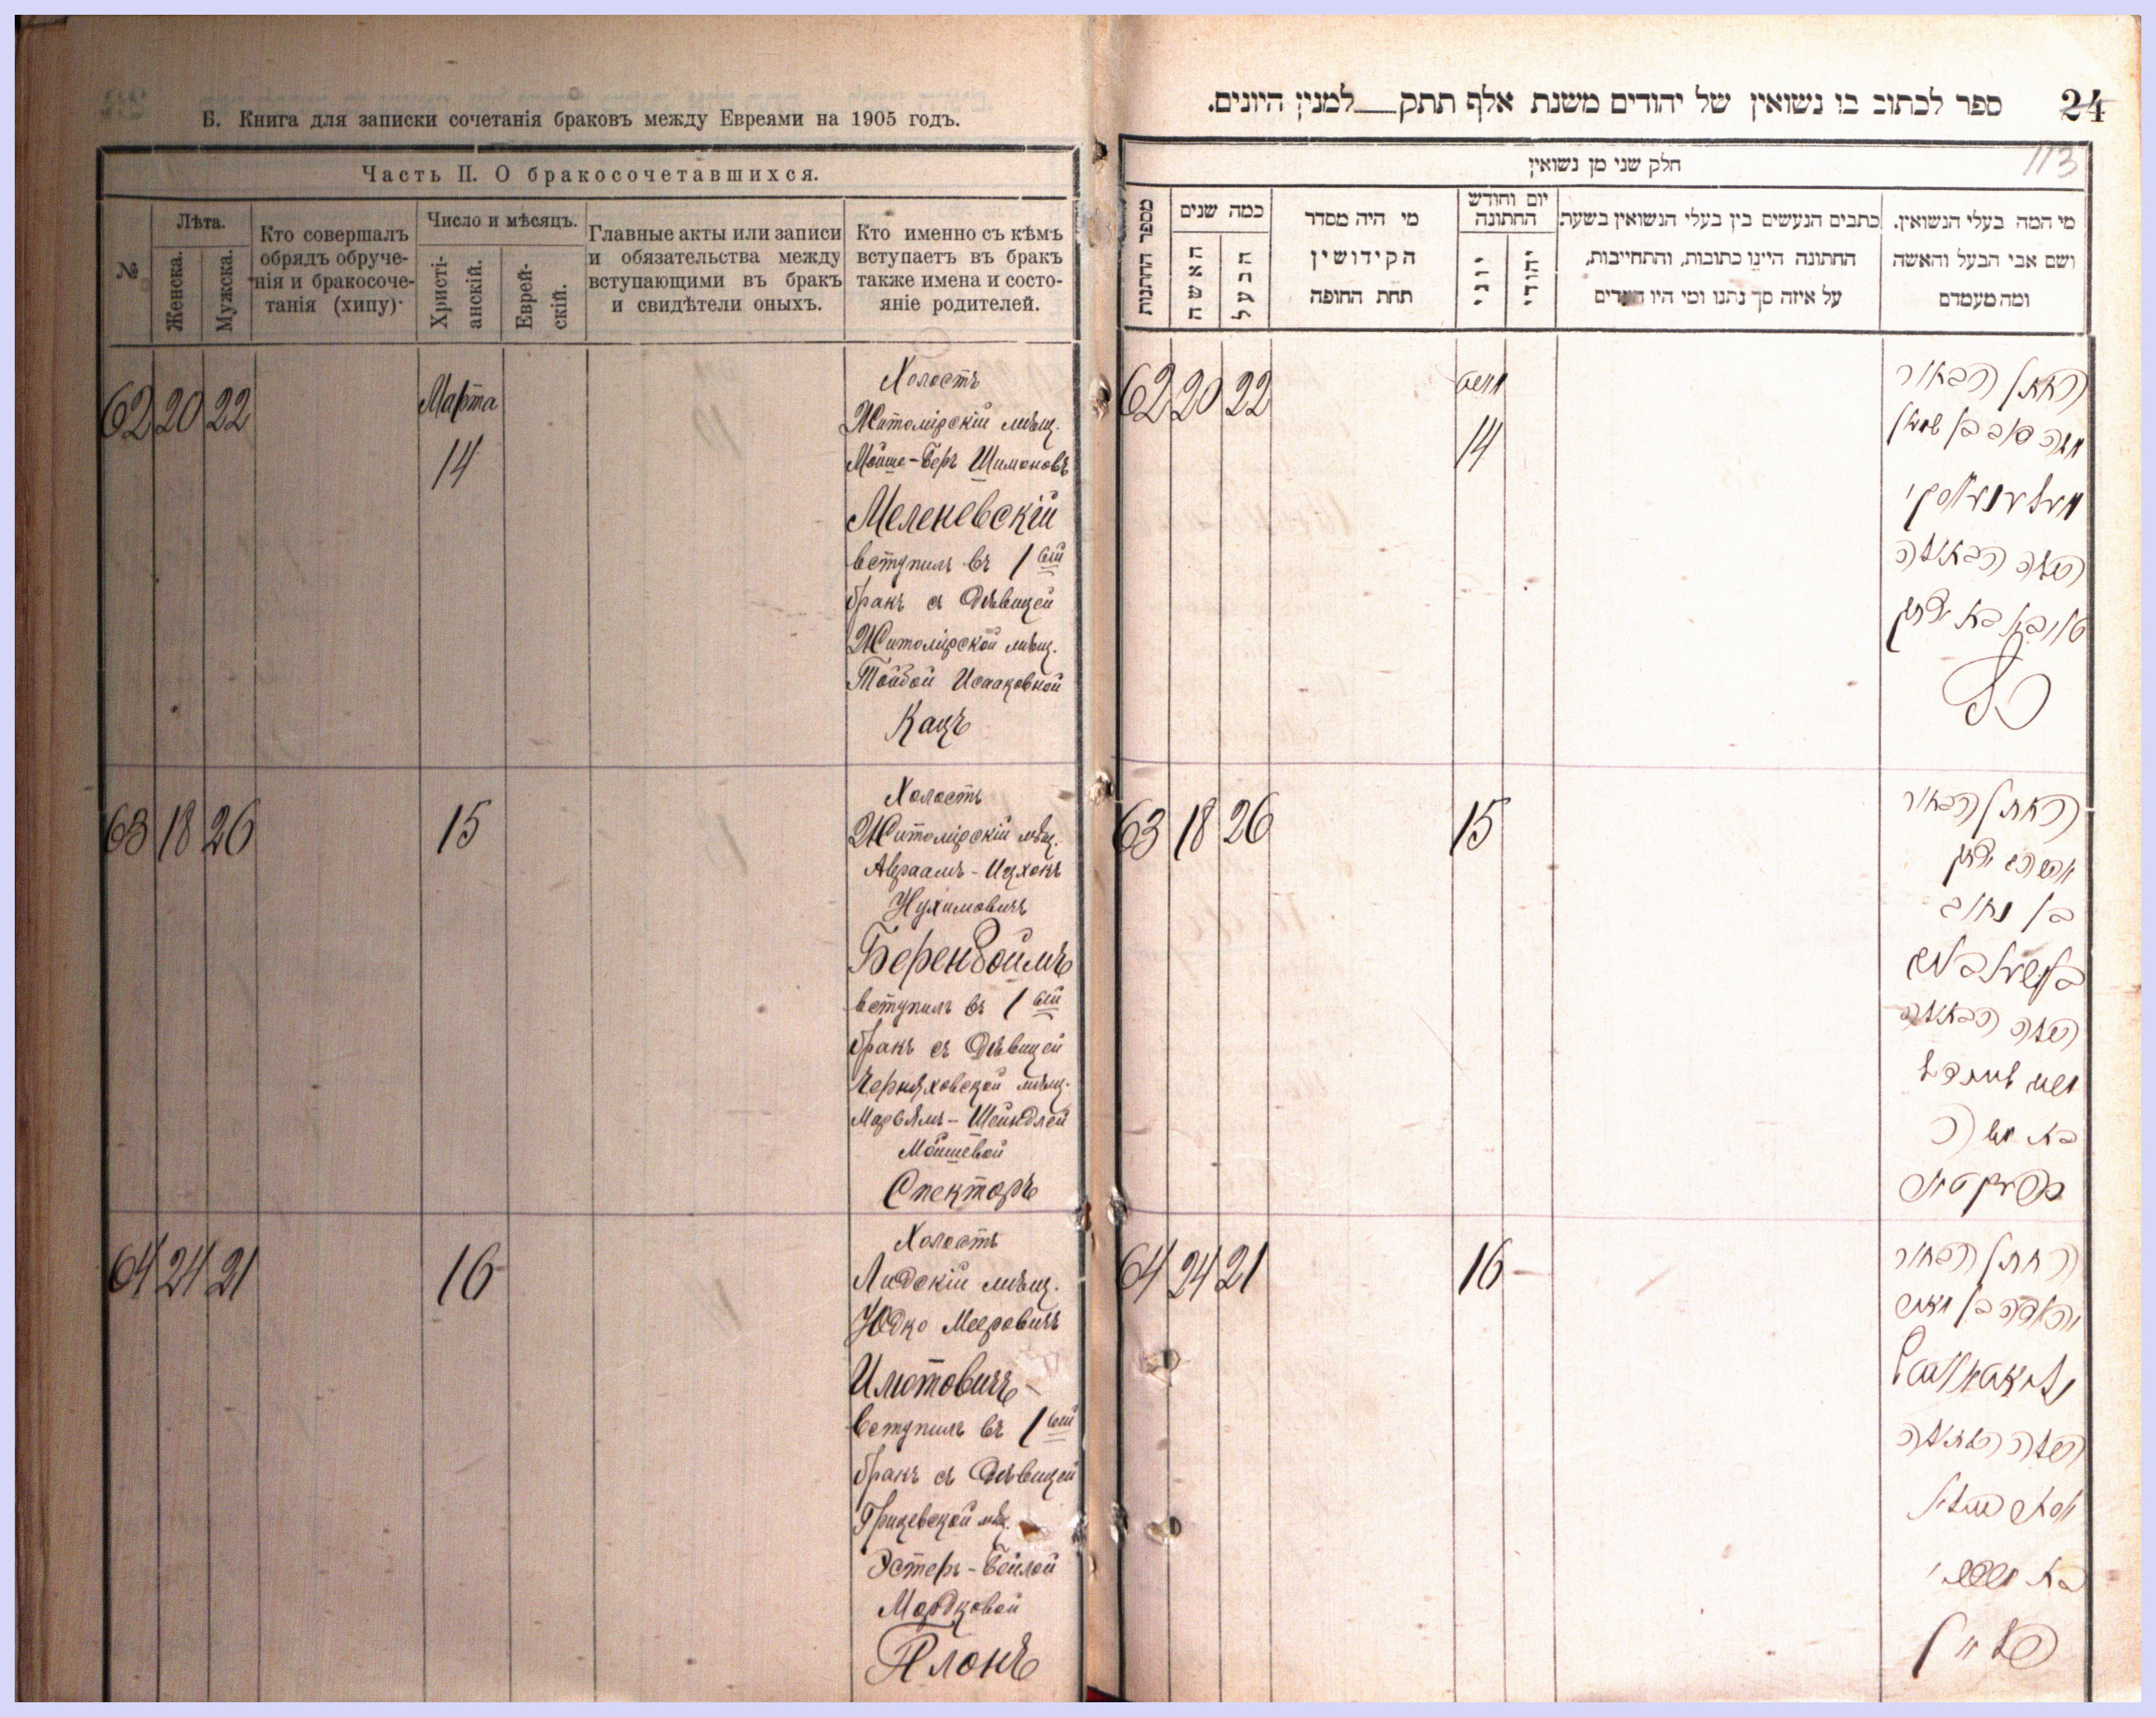 Б. Книга для записки сочетанія браковъ между Евреями на 1905 годъ.
Часть II. О бракосочетавшихся.
№
Лѣта.
Женска.
Мужска.
Кто совершалъ
обрядъ обруче-
нія и бракосоче-
танія (хипу)
Число и мѣсяцъ.
Христі-
анскій.
Еврей-
скій.
Главные акты или записи
и обязательства между
вступающими въ бракъ
и свидѣтели оныхъ.
Кто именно съ кѣмъ
вступаетъ въ бракъ
также имена и состо-
яніе родителей.
62 20 22
Марта
14
Холостъ
Житомірскій мѣщ.
Мойше-Беръ Шимоновъ
Меленевскій
вступилъ въ 1 ый
бракъ съ Дѣвицей
Житомірской мѣщ.
Тойбой Исааковной
Кацъ
63 18 26
15
Холостъ
Житомірскій мѣщ.
Авраамъ-Ицхокъ
Нухимовичъ
Беренбоймъ
вступилъ въ 1 ый
бракъ съ Дѣвицей
Черняховской мѣщ.
Марьямъ-Шейндлей
Мойшевой
Спекторъ
64 24 21
16
Холостъ
Лидскій мѣщ.
Юдко Мееровичъ
Илютовичъ
вступилъ въ 1 ый
бракъ съ Дѣвицей
Грицевской мѣщ.
Эстеръ-Бейлой
Мордковой
Плонъ
ספר לכתוב בו נשואין של יהודים משנת אלף תתק למנין היונים.
24
113
חלק שני מן נשואין
מספר החתנות
כמה שנים
האשה
הבעל
מי היה מסדר
הקידושין
תחת החופה
יום וחודש
החתונה
יוני
יהודי
כתבים הנעשים בין בעלי הנשואין בשעת
החתונה היינו כתובות, והתחייבות,
על איזה סך נתנו ומי היו העדים
מי המה בעלי הנשואין.
ושם אבי הבעל והאשה
ומה מעמדם
62 20 22
14
החתן הבחור
63 18 26
15
החתן הבחור
64 24 21
16
החתן הבחור